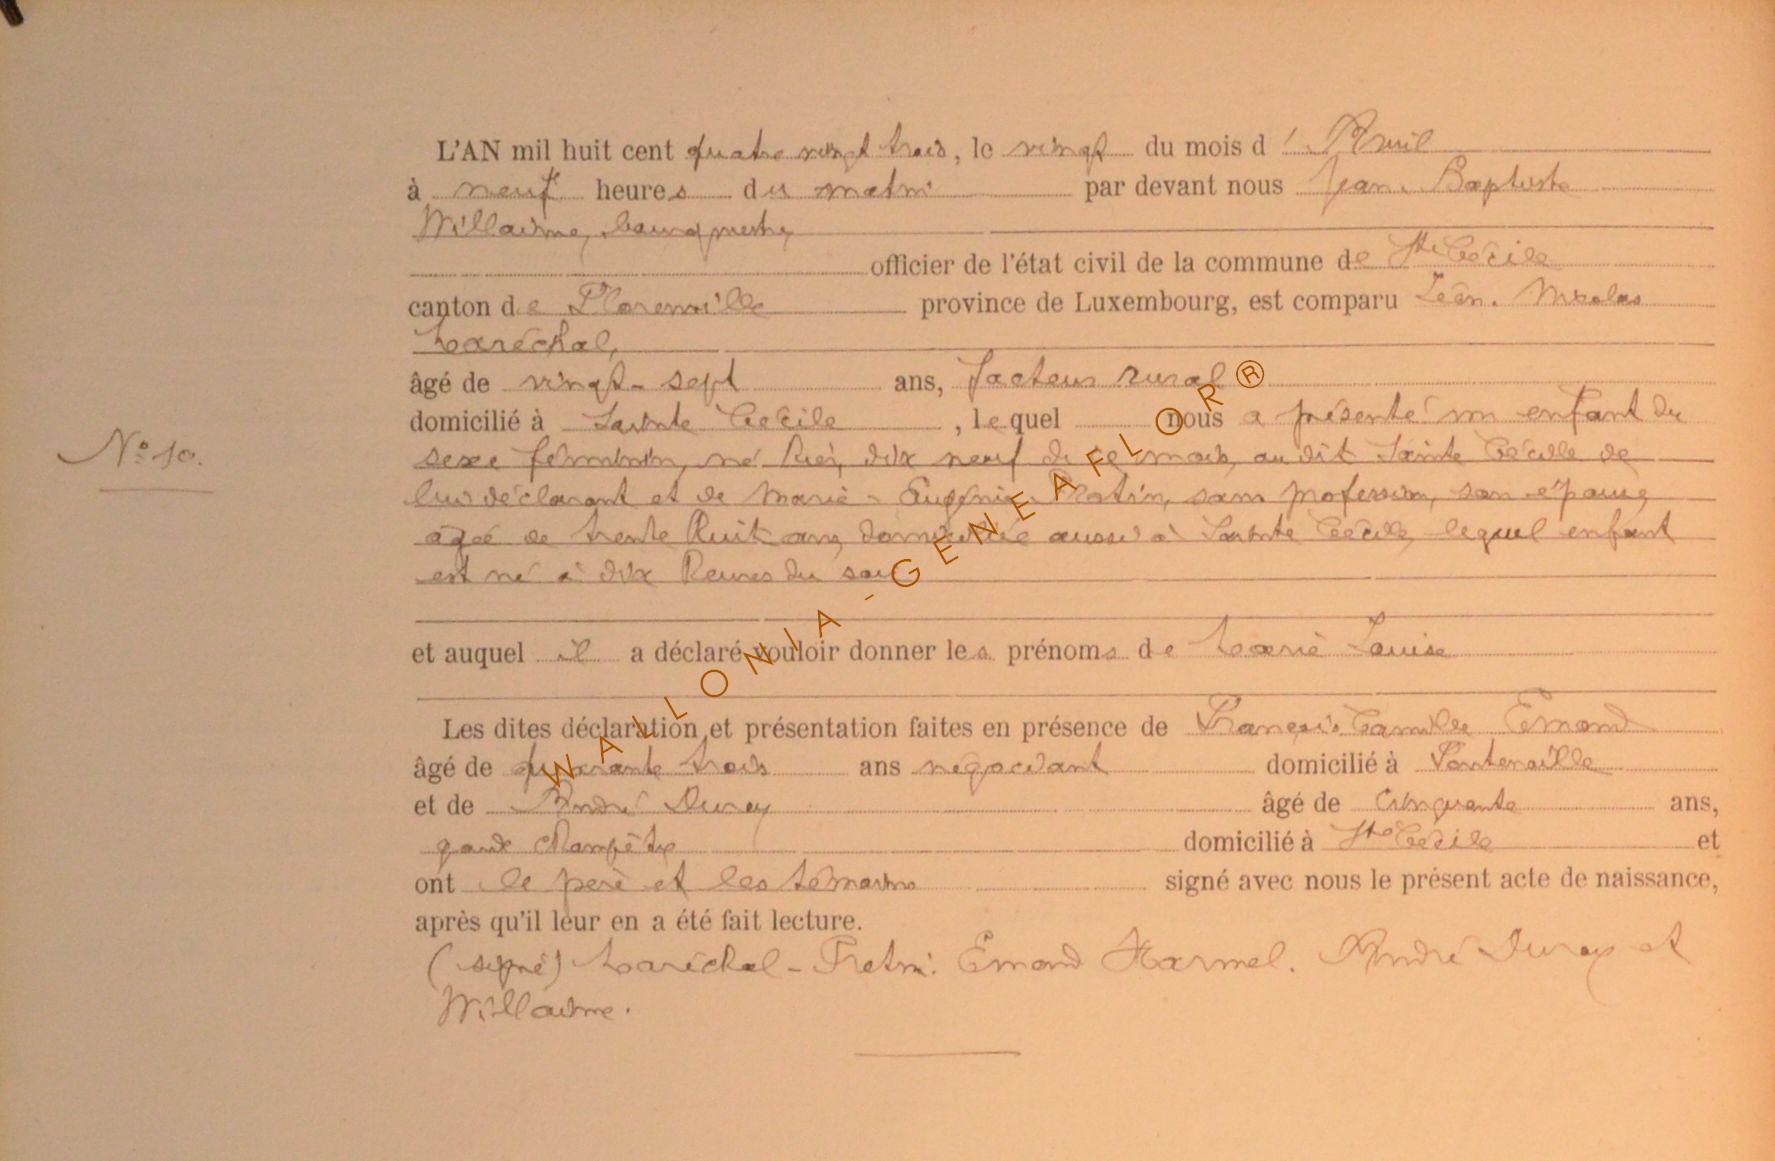 L'AN mil huit cent quatre vingt trois, le vingt du mois d' Avril
à neuf heures du matin par devant nous Jean-Baptiste
Willaime, bourgmestre
officier de l'état civil de la commune de Ste Cécile
canton de Florenville province de Luxembourg, est comparu Jean-Nicolas
Maréchal,
âgé de vingt-sept ans, facteur rural
domicilié à Sainte Cécile, lequel nous a présenté un enfant du
N° 10.
sexe féminin, né hier, dix neuf de ce mois, au dit Sainte Cécile de
lui déclarant et de Marie-Eugénie sans profession, son épouse,
âgée de trente huit ans, domiciliée aussi à Sainte Cécile, lequel enfant
est né à dix heures du soir
et auquel il a déclaré vouloir donner les prénoms de Marie Louise
Les dites déclaration et présentation faites en présence de François Camille Emond
âgé de quarante trois ans négociant domicilié à Fontenoille
et de André Duroy âgé de cinquante ans,
garde champêtre domicilié à Ste Cécile et
ont le père et les témoins signé avec nous le présent acte de naissance,
après qu'il leur en a été fait lecture.
(signé) Maréchal - Emond Harmel. André Duroy et
Willaime.
WALLONIA-GENEAFLOR®